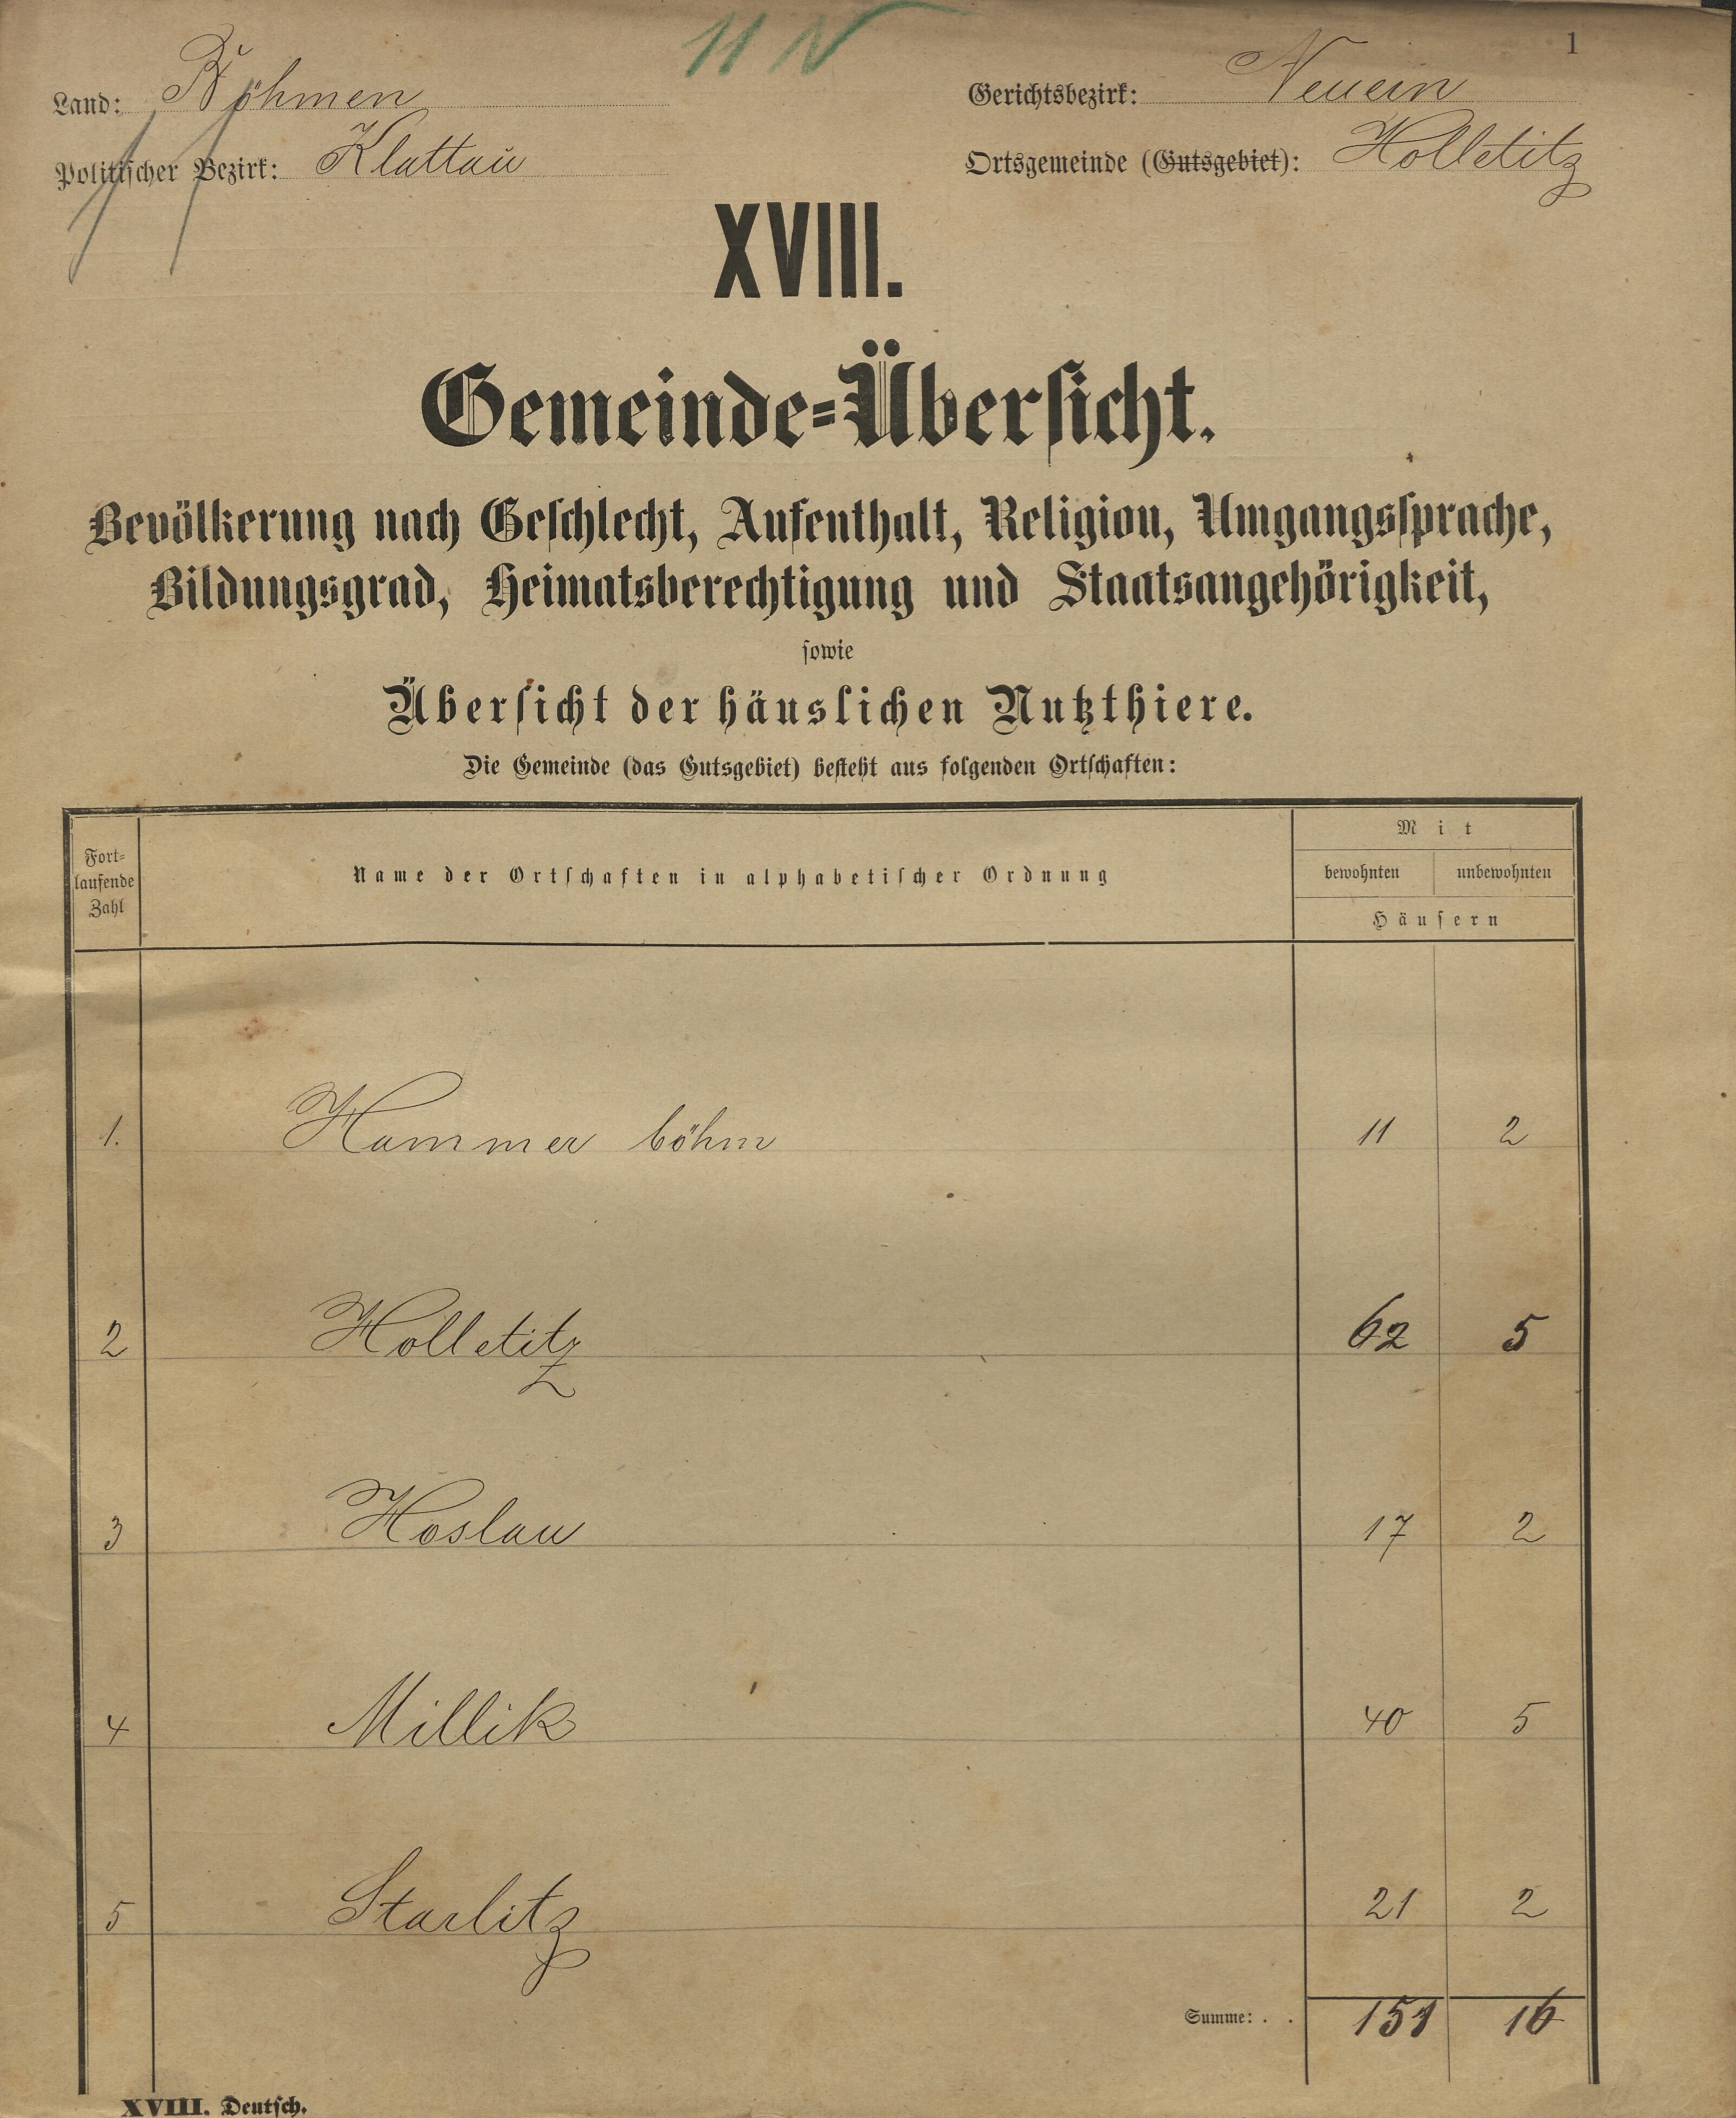 11 N
1
Land: Böhmen
Gerichtsbezirk: Neuern
Politischer Bezirk: Klattau
Ortsgemeinde (Gutsgebiet): Holletitz
XVIII.
Gemeinde=Übersicht.
Bevölkerung nach Geschlecht, Aufenthalt, Religion, Umgangssprache,
Bildungsgrad, Heimatsberechtigung und Staatsangehörigkeit,
sowie
Übersicht der häuslichen Nutzthiere.
Die Gemeinde (das Gutsgebiet) besteht aus folgenden Ortschaften:
Fort=laufende Zahl
Name der Ortschaften in alphabetischer Ordnung
Mit
bewohnten unbewohnten
Häusern
1. Hammer böhm 11 2
2 Holletitz 62 5
3 Hoslau 17 2
4 Millik 40 5
5 Starlitz 21 2
Summe: . . 151 16
XVIII. Deutsch.